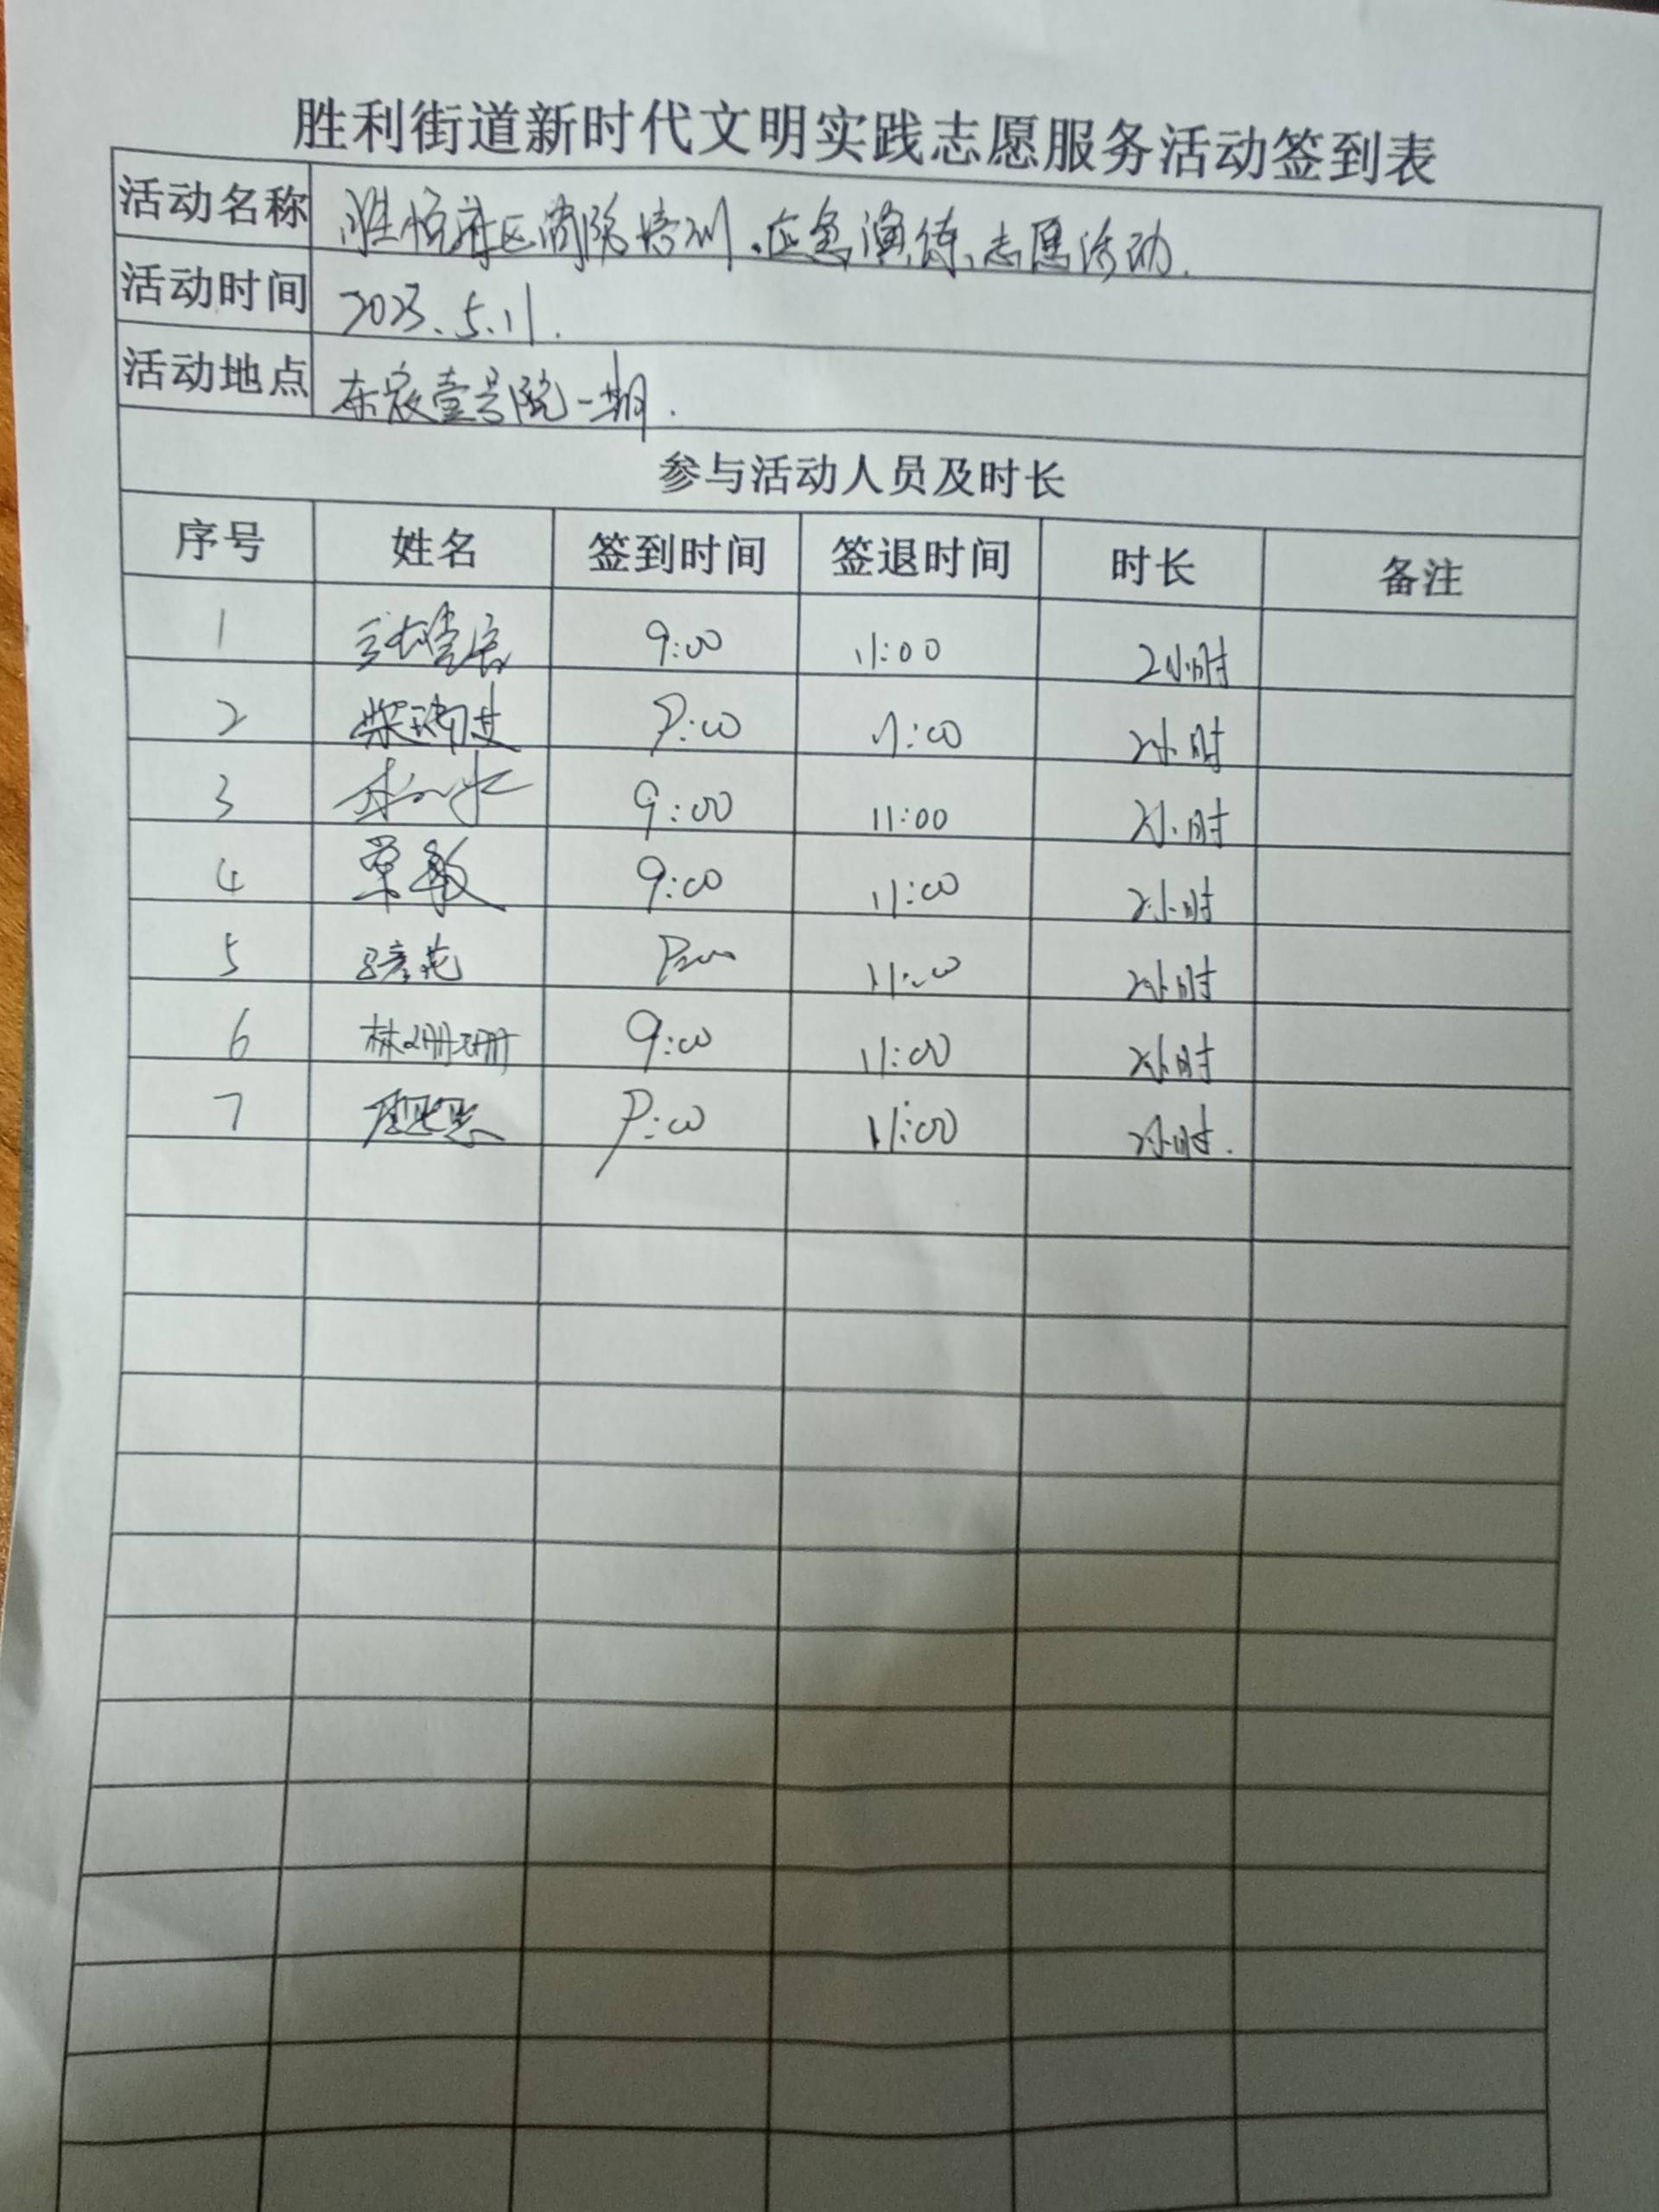 胜利街道新时代文明实践志愿服务活动签到表
活动名称 胜恒社区消防培训、应急演练、志愿活动.
活动时间 2023.5.11.
活动地点 东宸壹号院一期.
参与活动人员及时长
序号 姓名 签到时间 签退时间 时长 备注
1 9:00 11:00 2小时
2 9:00 11:00 2小时
3 9:00 11:00 2小时
4 单敏 9:00 11:00 2小时
5 9:00 11:00 2小时
6 林珊珊 9:00 11:00 2小时
7 9:00 11:00 2小时.